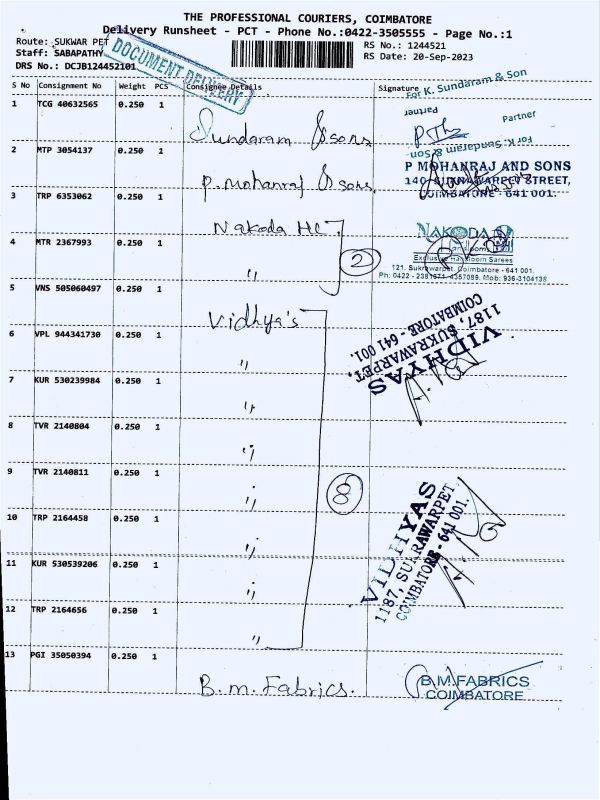 THE PROFESSIONAL COURIERS, COIMBATORE
Delivery Runsheet - PCT - Phone No.:0422-3505555 - Page No.:1
Route: SUKWAR PET
RS No.: 1244521
Staff: SABAPATHY
RS Date: 20-Sep-2023
DRS No.: DCJB124452101
DOCUMENT DELIVERY
S No Consignment No Weight PCS Consignee Details Signature
For K. Sundaram & Son
Partner
1 TCG 40632565 0.250 1 Sundaram & sons
Partner
For K. Sundaram & Son
2 MTP 3054137 0.250 1 P. mohanraj & sons,
P MOHANRAJ AND SONS
140, SUKRAWARPET STREET,
COIMBATORE - 641 001.
3 TRP 6353062 0.250 1 Nakoda HL
NAKODA
Handlooms
Exclusive Handloom Sarees
121, Sukrawarpet, Coimbatore - 641 001.
4 MTR 2367993 0.250 1 "
2
5 VNS 505060497 0.250 1 Vidhya's
VIDHYAS
1187, SUKRAWARPET,
COIMBATORE - 641 001.
6 VPL 944341730 0.250 1 "
7 KUR 530239984 0.250 1 "
8 TVR 2140804 0.250 1 "
9 TVR 2140811 0.250 1 "
8
10 TRP 2164458 0.250 1 "
VIDHYAS
1187, SUKRAWARPET,
COIMBATORE - 641 001.
11 KUR 530539206 0.250 1 "
12 TRP 2164656 0.250 1 "
13 PGI 35050394 0.250 1 B.m. Fabrics.
B.M.FABRICS
COIMBATORE